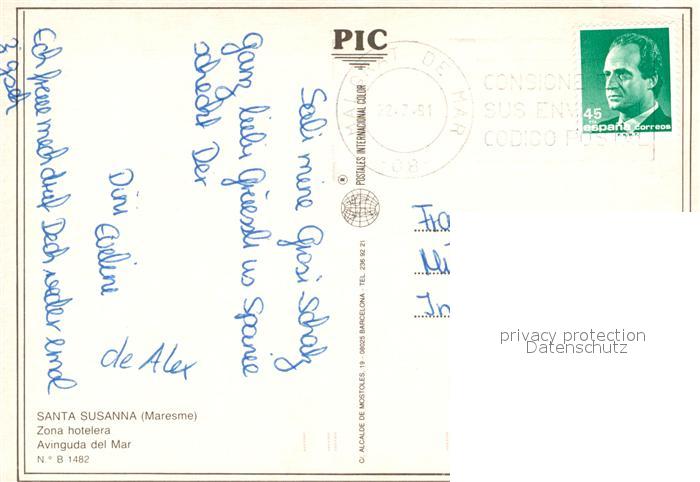 PIC
MALGRAT DE MAR
-7-91
08
CONSIGNE
SUS ENV
CODIGO POSTAL
45
PTA
españa correos
Sali mine
ganz liebi Grüessli us Spanie
schickt Der
Dini Evelini
de Alex
Ech freue mech druf Dech weder emol
z'gseh
Fra
In
® POSTALES INTERNACIONAL COLOR
C/ ALCALDE DE MOSTOLES, 19 - 08025 BARCELONA - TEL. 236 92 21
privacy protection
Datenschutz
SANTA SUSANNA (Maresme)
Zona hotelera
Avinguda del Mar
N.° B 1482